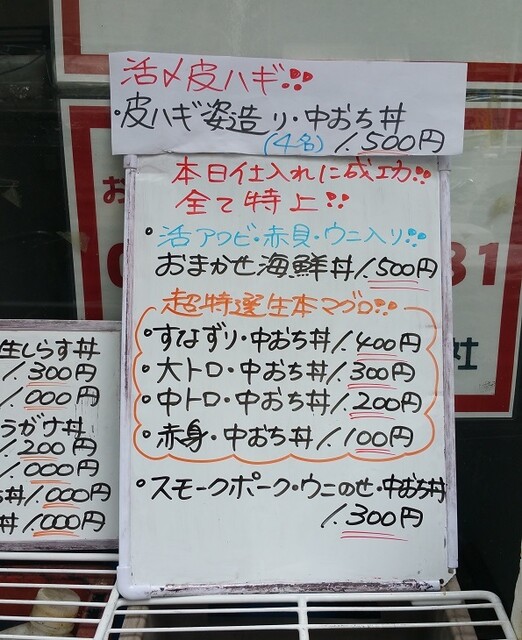 活〆皮ハギ!!
・皮ハギ姿造り・中おち丼
(4名) 1.500円
本日仕入れに成功!!
全て特上!!
・活アワビ・赤貝・ウニ入り!!
おまかせ海鮮丼1.500円
超特選生本マグロ!!
・すなずり・中おち丼1.400円
・大トロ・中おち丼1.300円
・中トロ・中おち丼1.200円
・赤身・中おち丼1.100円
・スモークポーク・ウニのせ・中おち丼
1.300円
生しらす丼
1.300円
1.000円
うがけ丼
1.200円
1.000円
丼1.000円
丼1.000円
お
0
31
社